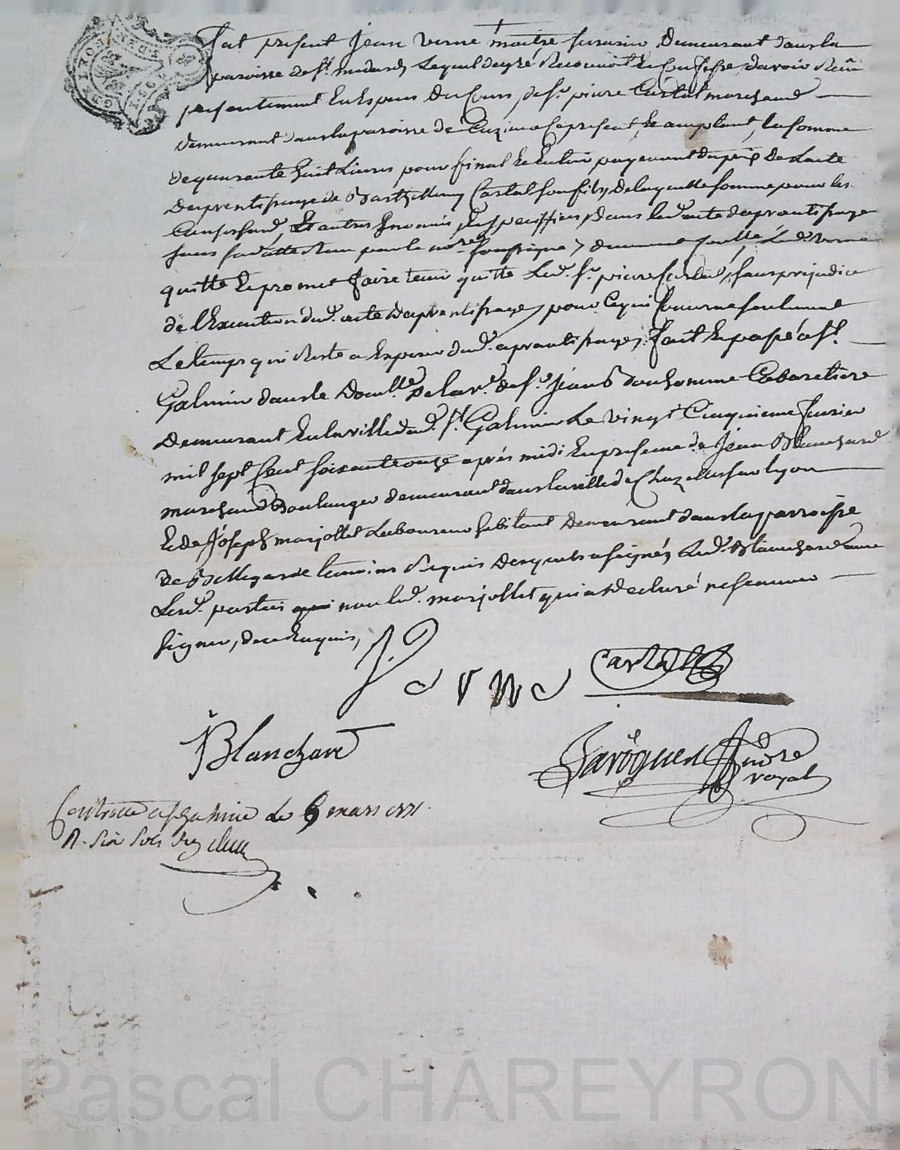 fut présent Jean verne maitre serrurier demeurant dans la
paroisse de St. medard, Lequel de gré Reconnoit Et Confesse davoir Reçu
presentement En Especes du Cours de Sr. pierre Castal marchand
demeurant dans la paroisse de présent, Et acceptant, la somme
de quarante huit Livres pour final Et Entier payement du prix de Lacte
daprentissage de Barthellemy Castal son fils, de laquelle somme pour les
Causes susd. Et autres dans led. acte daprantissage
par le no.re soussigné, demeure led. verne
quitte Et promet faire tenir quitte Led. Sr. pierre Castal, sans prejudice
de lExecution dud. acte daprentissage, pour Ce qui Concerne seulement
Le temps qui Reste a Expirer dud. aprantissage, fait Et passé a St.
Galmier dans le domlle. de la ve. de Sr. Jean donhomme Cabaretiere
demeurant En la ville dud. St. Galmier Le vingt Cinquieme fevrier
mil sept Cent soixante onze après midi En presence de Jean Blanchard
marchand Boulanger demeurant dans la ville de Chazelles sur Lyon
Et de Joseph marjollet Laboureur habitant demeurant dans la parroisse
de Bellegarde temoins Requis desquels a signé Led. Blanchard avec
Lesd. parties non led. marjollet qui a declaré ne scavoir
signer, de ce Enquis,
J. verne Castal
J Blanchard
Not.re royal
Contrôlé a St Galmier Le 6 mars 1771.
R. Six sols
Pascal CHAREYRON